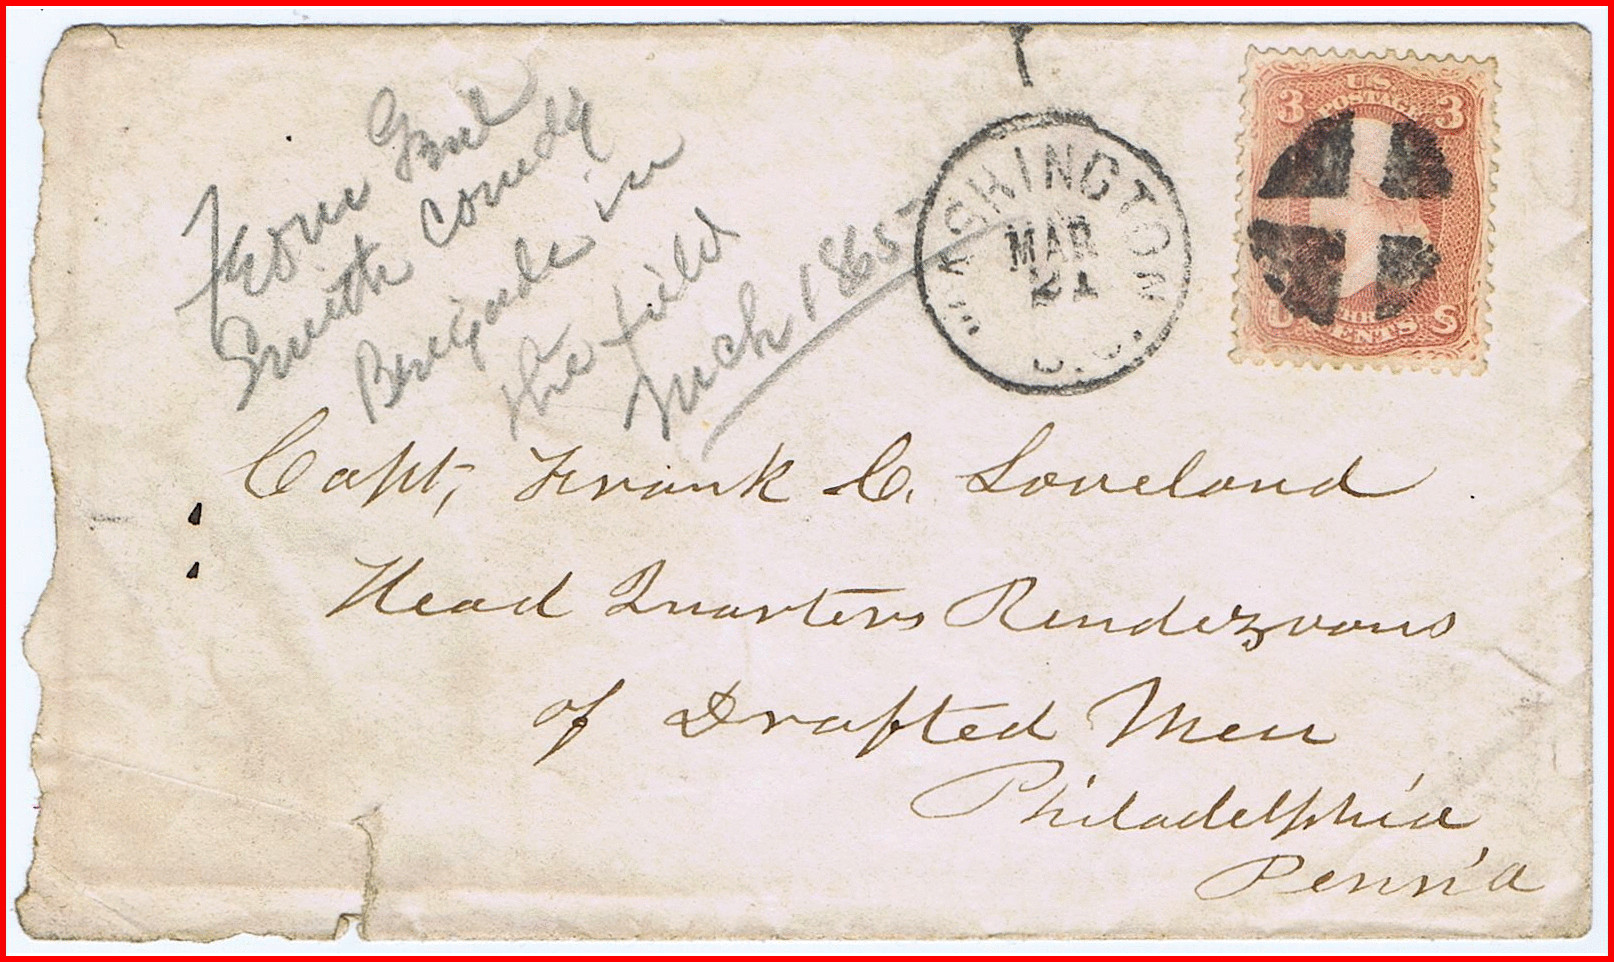 From Genl
Smith Comdg
Brigade in
the field
Mch 1865
WASHINGTON
MAR
21
D.C.
3 US 3
POSTAGE
U THREE S
CENTS
Capt, Frank C. Loveland
Head Quarters Rendezvous
of Drafted Men
Philadelphia
Penn'a